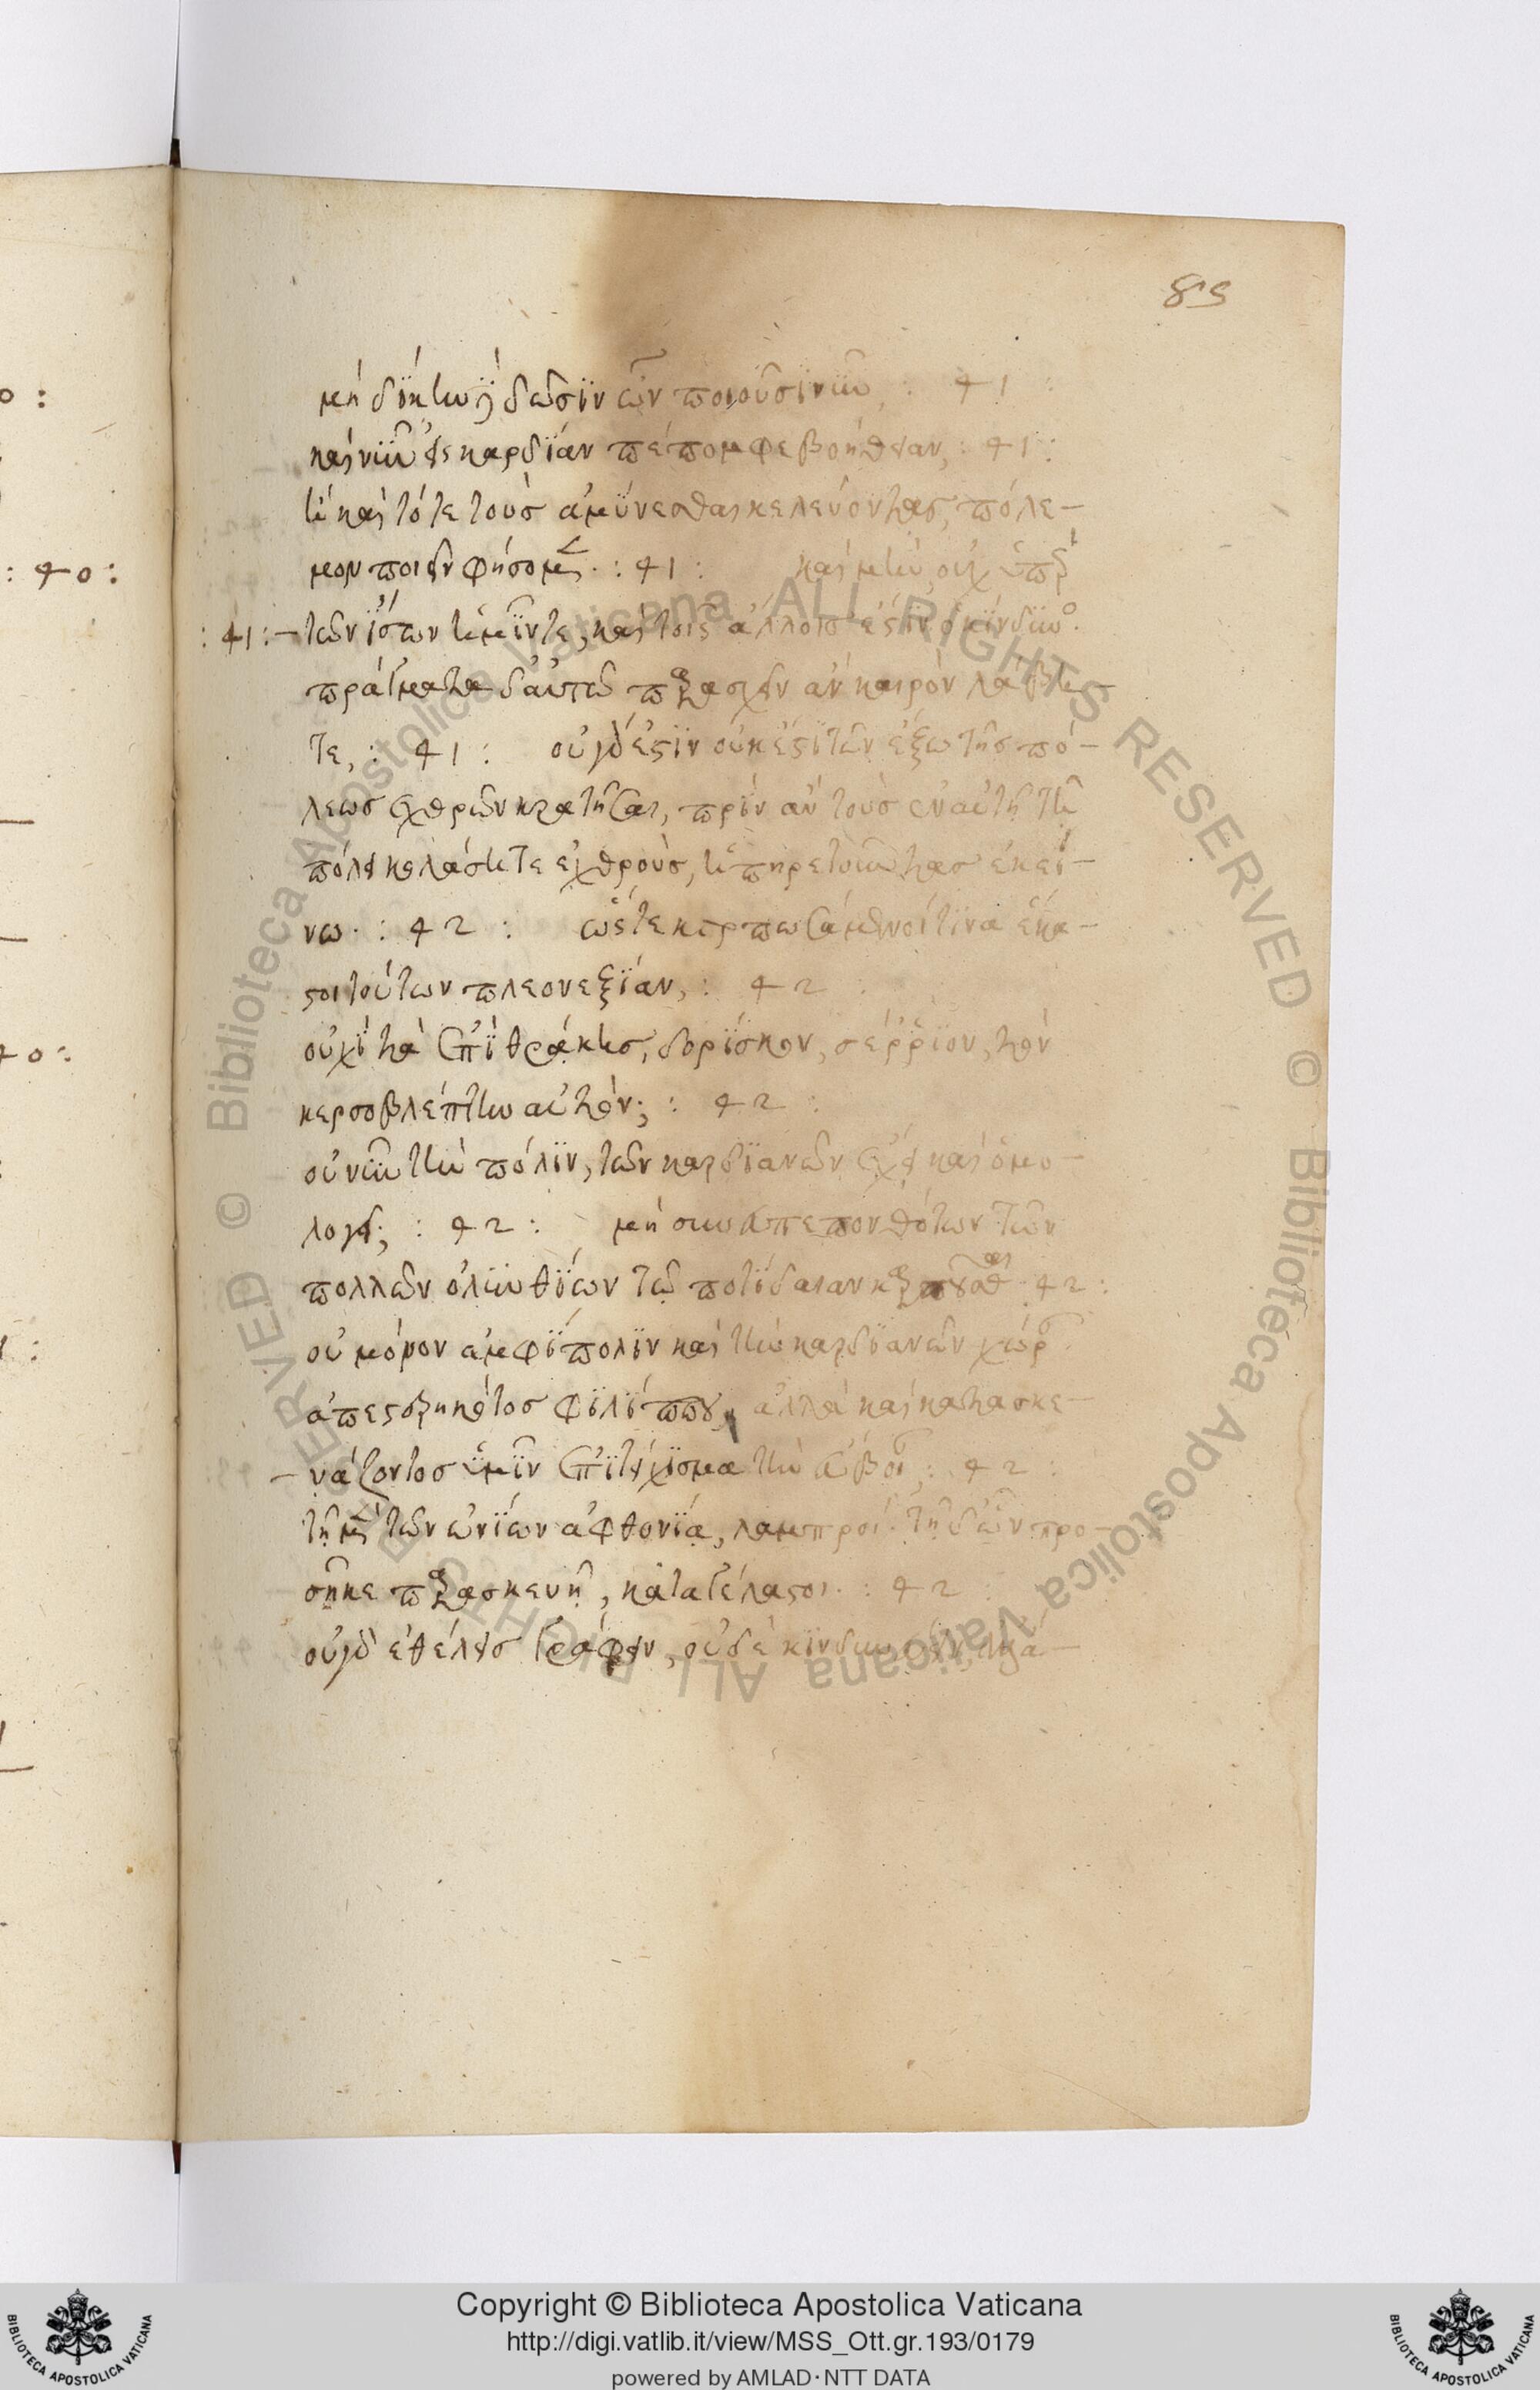 89
μὴ δίκην δῶσιν ὧν ποιοῦσι νῦν, : 41 :
καὶ νῦν εἰς καρδίαν πέπομφε βοήθειαν, : 41 :
ἢ καὶ τότε τοὺς ἀμύνεσθαι κελεύοντας, πόλε-
μον ποιεῖν φήσομεν. : 41 : καὶ μὴν οὐχ ὑπὲρ
: 41 : - τῶν ἴσων ὑμῖν τε, καὶ τοῖς ἄλλοις ἐστὶν ὁ κίνδυνος.
πράγματα δ' αὐτῷ παρασχεῖν ἂν καιρὸν λάβη-
τε, : 41 : οὐ γὰρ ἔστιν οὐκ ἔστι τῶν ἔξω τῆς πό-
λεως ἐχθρῶν κρατῆσαι, πρὶν ἂν τοὺς ἐν αὐτῇ τῇ
πόλει κολάσητε ἐχθροὺς, ὑπηρετοῦντας ἐκεί-
νω. : 42 : ὥστε καρπωσάμενοί τινα ἕκα-
στοι τούτων πλεονεξίαν, : 42 :
οὐχὶ τὰ ἐπὶ θράκης, δορίσκον, σέρριον, τὸν
κερσοβλέπτην αὐτόν; : 42 :
οὐ νῦν τὴν πόλιν, τῶν καρδιανῶν ἔχει καὶ ὁμο-
λογεῖ; : 42 : μὴ συνευπεπονθότων τῶν
πολλῶν ὀλυνθίων τῷ ποτίδαιαν 42 :
οὐ μόνον ἀμφίπολιν καὶ τὴν καρδιανῶν χώραν
ἀπεστερηκότος φιλίππου, ἀλλὰ καὶ κατασκε-
- υάζοντος ὑμῖν ἐπιτείχισμα τὴν εὔβοιαν, : 42 :
τῇ μὲν τῶν ὠνίων ἀφθονίᾳ, λαμπροί. τῇ δ' ὧν προ-
σῆκε παρασκευῇ, καταγέλαστοι. : 42 :
οὐ γὰρ ἐθέλεις γράφειν, οὐδὲ κινδυνεύειν,
Copyright © Biblioteca Apostolica Vaticana
http://digi.vatlib.it/view/MSS_Ott.gr.193/0179
powered by AMLAD·NTT DATA